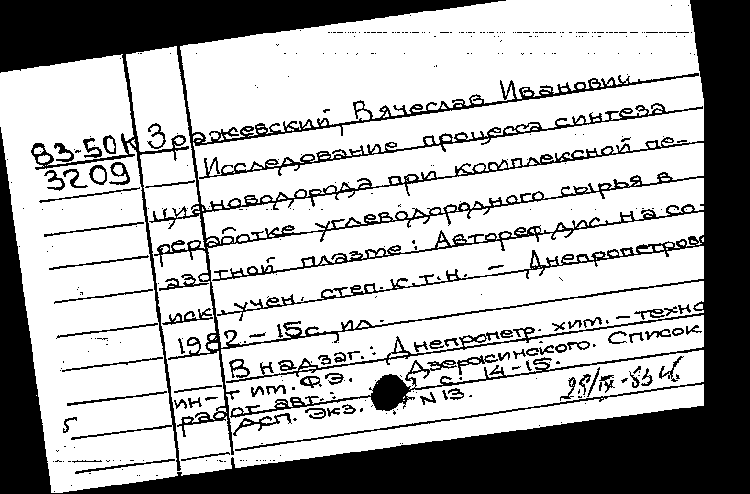 83-50К
3209
Зражевский, Вячеслав Иванович.
Исследование процесса синтеза
циановодорода при комплексной пе-
реработке углеводородного сырья в
азотной плазме: Автореф. дис. на со-
иск. учен. степ. к.т.н. – Днепропетровс
1982. – 15с., ил.
В надзаг.: Днепропетр. хим. – техно
ин-т им. Ф.Э. Дзержинского. Список
работ авт.: с. 14-15.
Деп. Экз. N 13.
28/IV-83
5